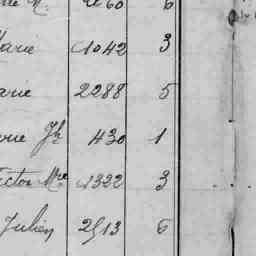 60 6
arie 1042 3
arie 2288 5
Jh 430 1
ictor Mre 1322 3
Julien 2513 6